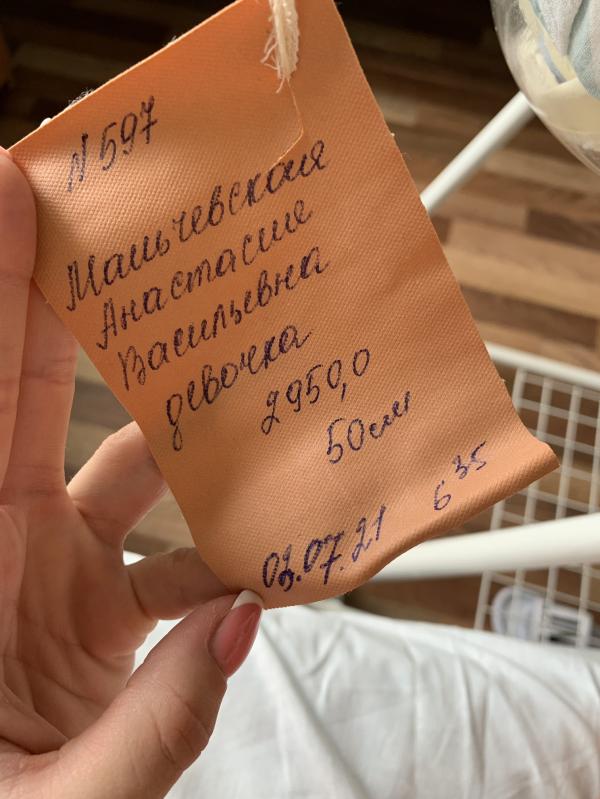 N 597
Мальчевская
Анастасие
Васильевна
девочка
2950,0
50см
02.07.21 6 35